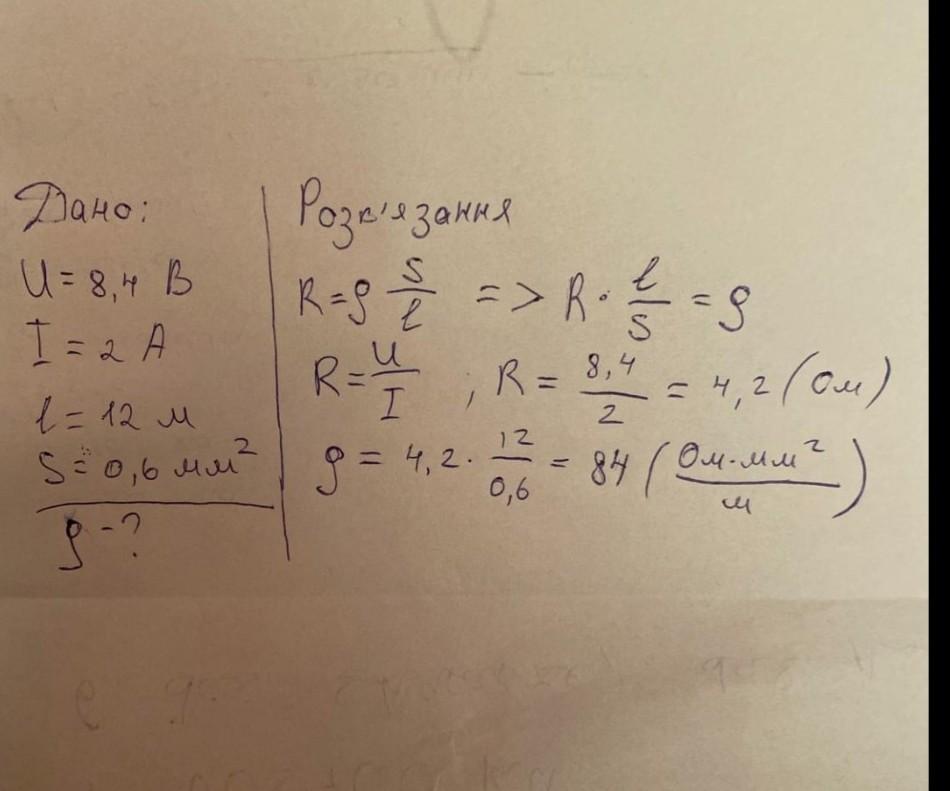 Дано:
U = 8,4 В
I = 2 А
l = 12 м
S = 0,6 мм²
ρ - ?
Розв'язання
R = ρ S/l => R · l/S = ρ
R = U/I ; R = 8,4/2 = 4,2 (Ом)
ρ = 4,2 · 12/0,6 = 84 (Ом·мм²/м)